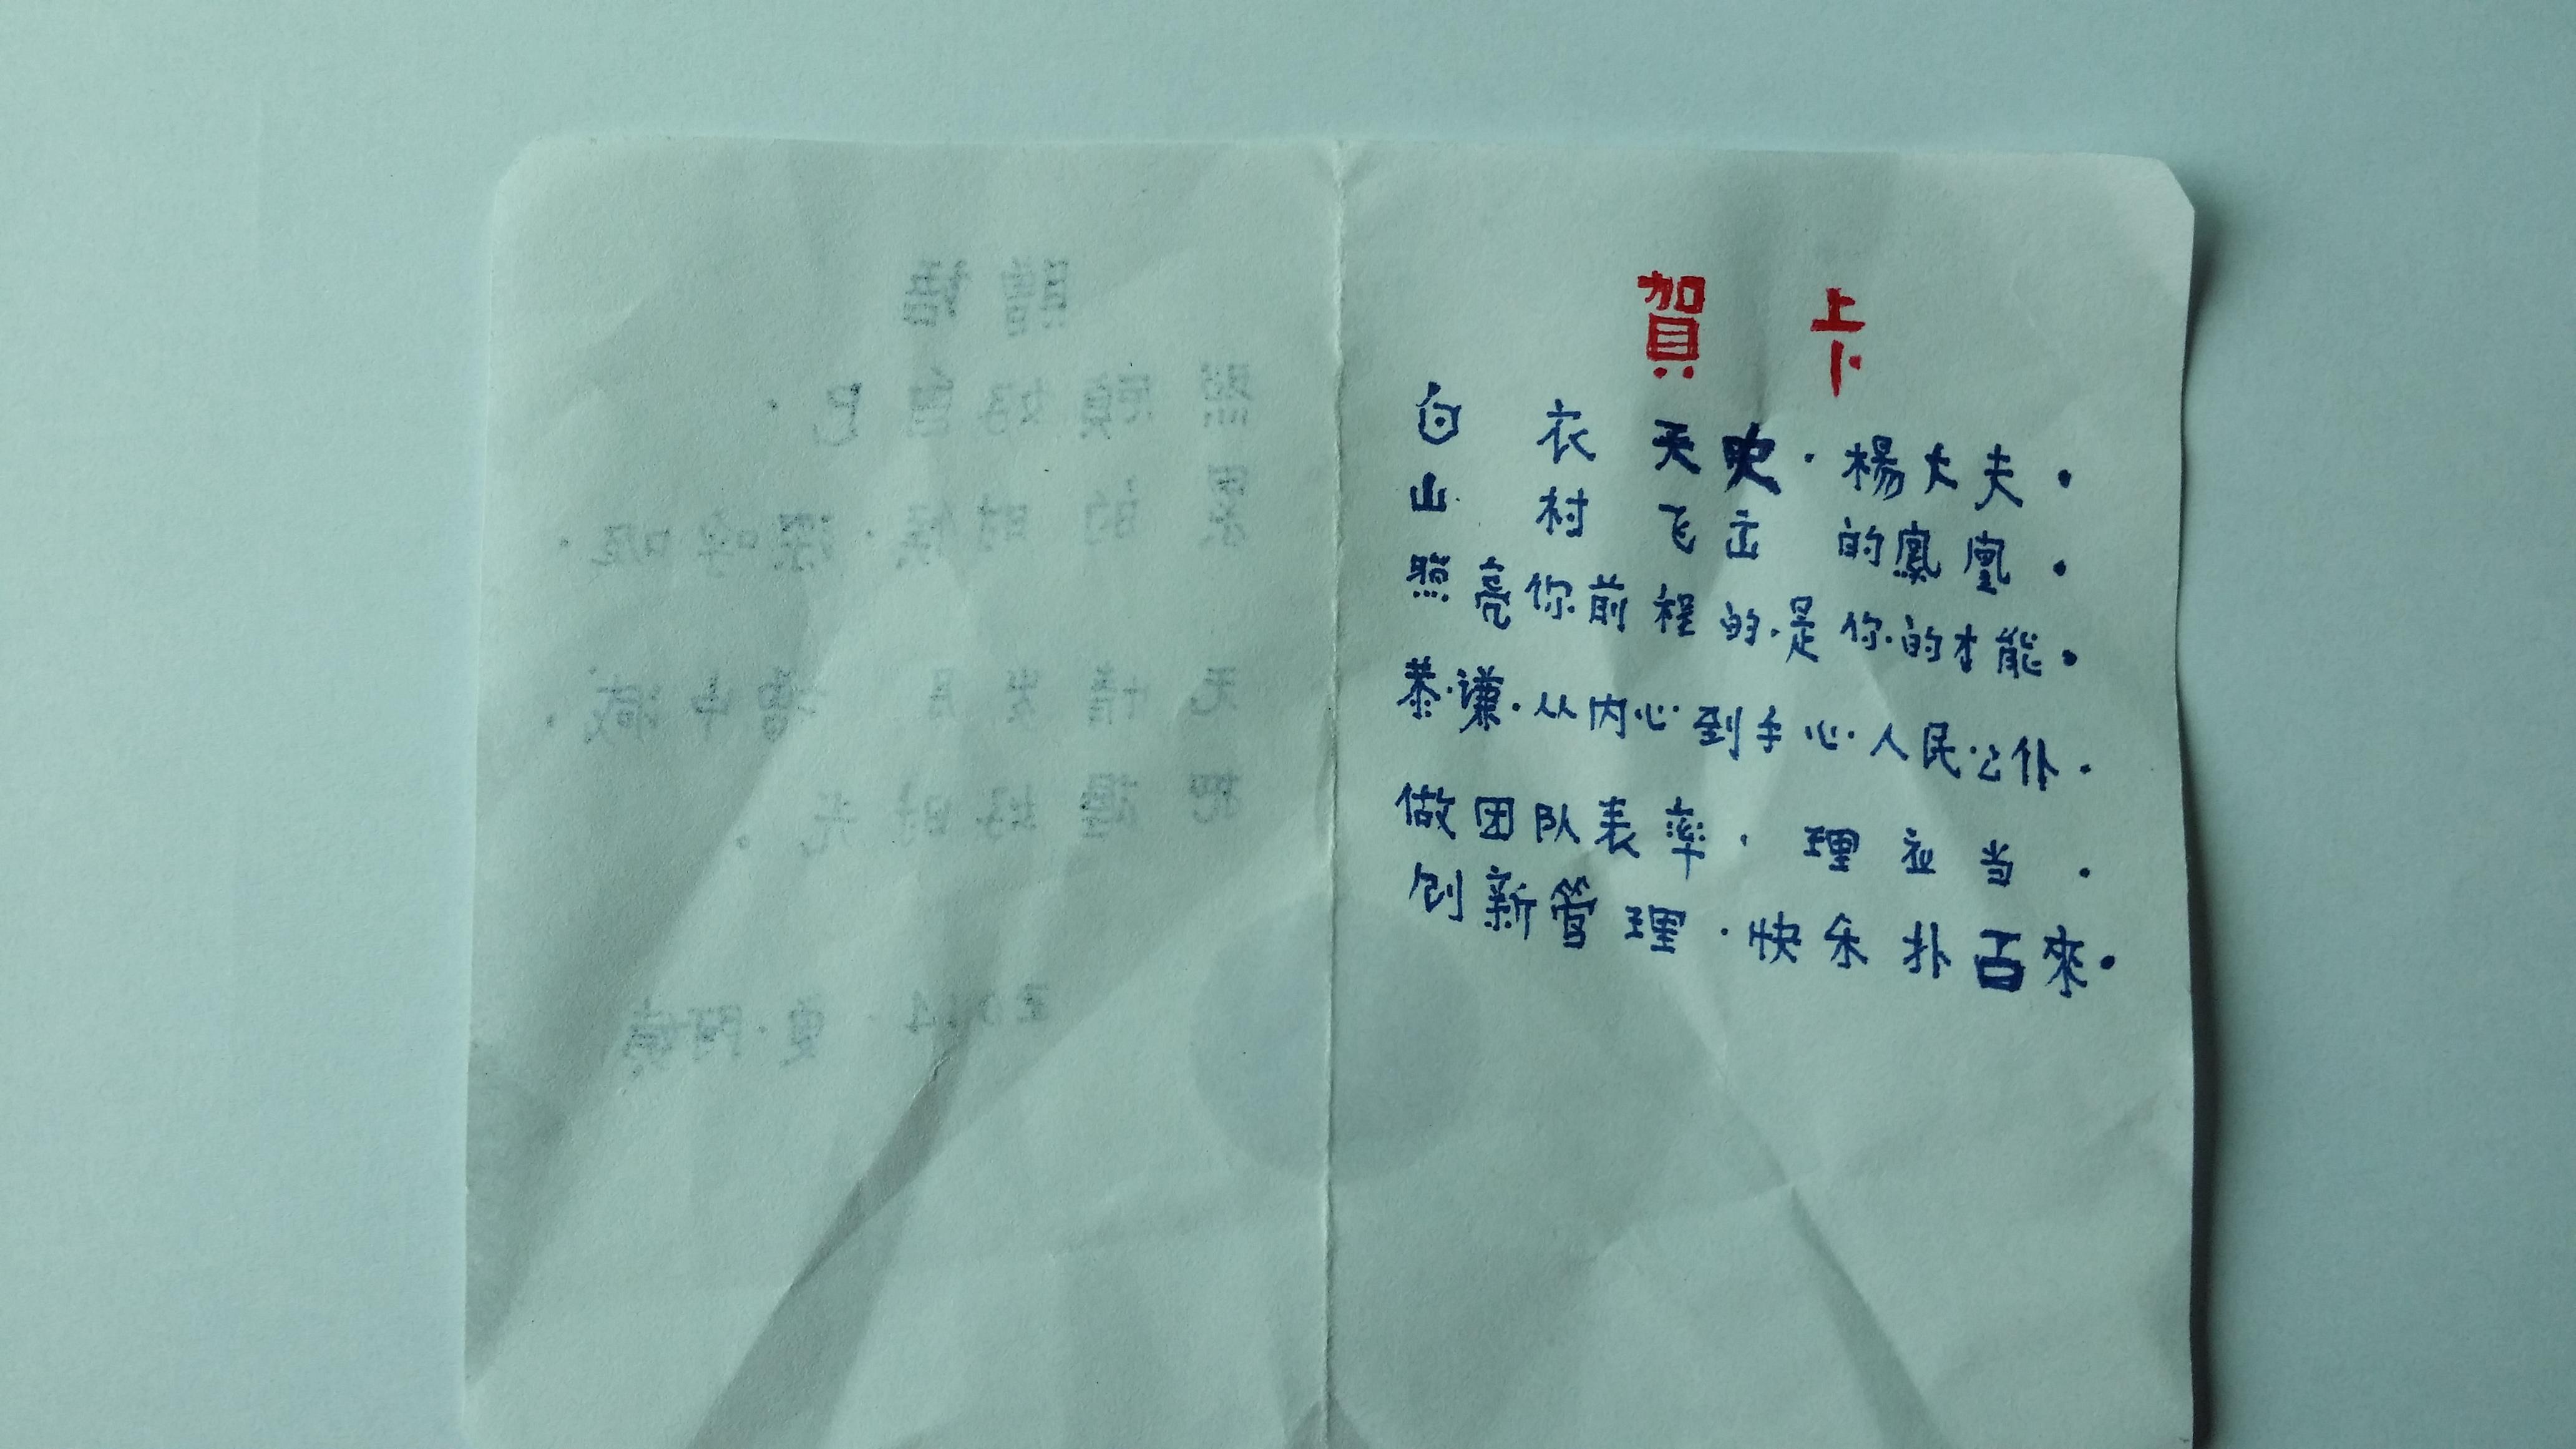 贈语
照顾好自己.
累的时候.深呼吸.
无情岁月 增中减.
把握好时光.
2014.
賀卡
白衣天使.楊大夫.
山村飞出的鳳凰.
照亮你前程的.是你.的才能.
恭.谦.从内心.到手心.人民.公仆.
做团队表率. 理应当.
创新管理.快乐扑面來.